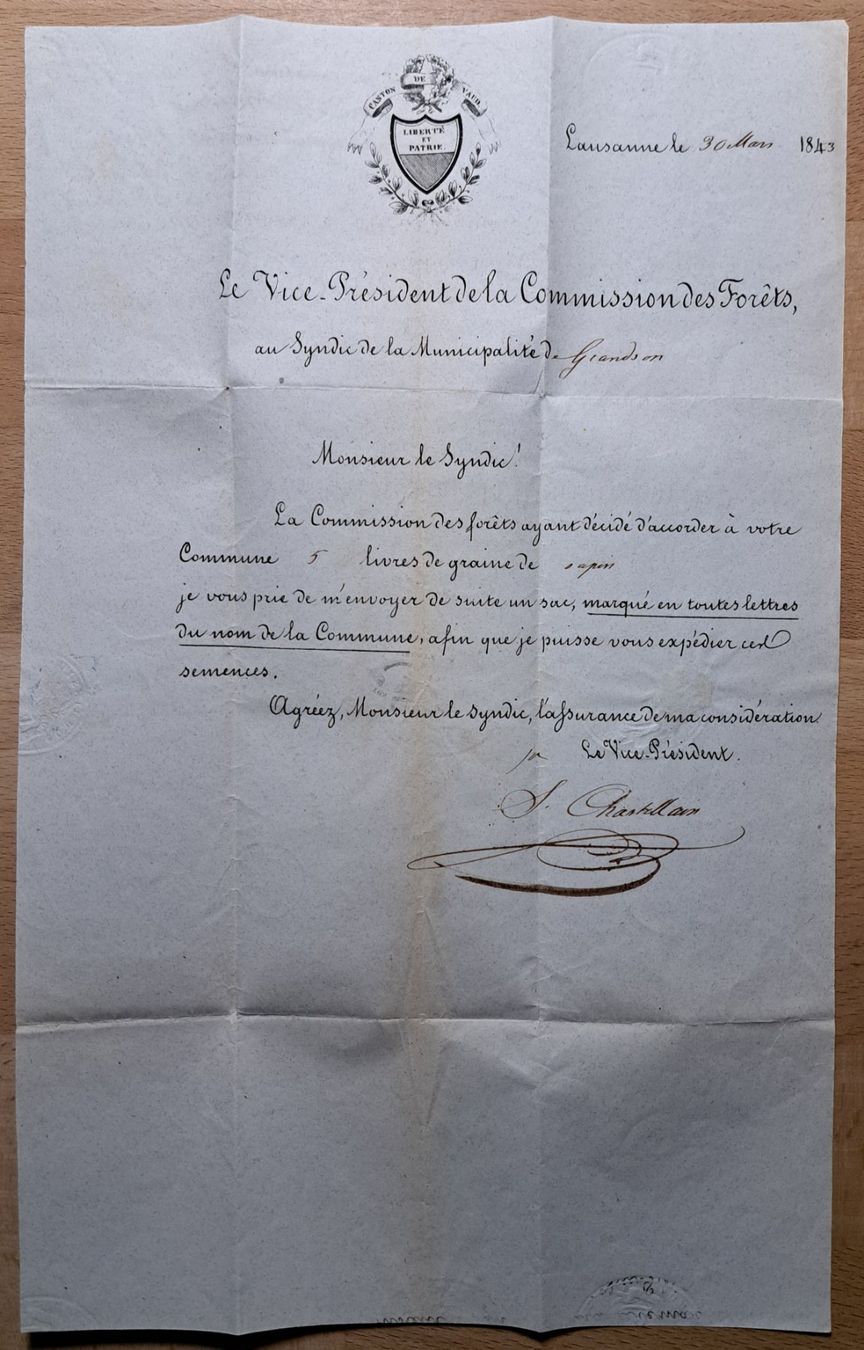 CANTON DE VAUD
LIBERTÉ
ET
PATRIE.
Lausanne le 30 Mars 1843
Le Vice-Président de la Commission des Forêts,
au Syndic de la Municipalité de Grandson
Monsieur le Syndic!
La Commission des forêts ayant décidé d'accorder à votre
Commune 5 livres de graine de sapin
je vous prie de m'envoyer de suite un sac, marqué en toutes lettres
du nom de la Commune, afin que je puisse vous expédier ces
semences.
Agréez, Monsieur le Syndic, l'assurance de ma considération
Le Vice-Président.